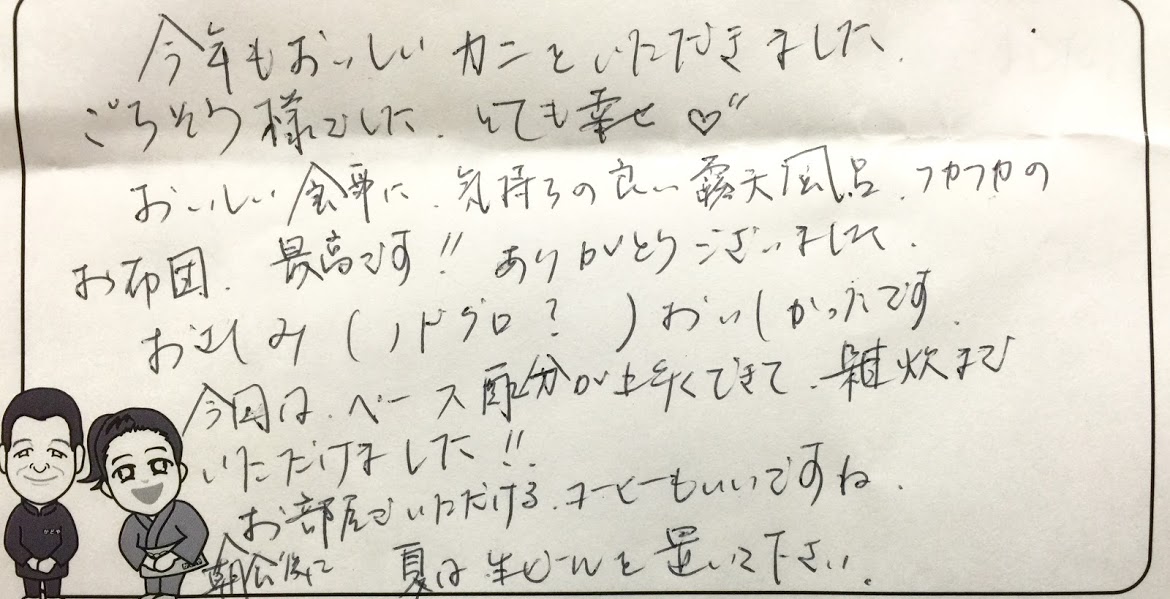 今年もおいしいカニをいただきました.
ごちそう様でした. とても幸せ♡〃
おいしい食事に、気持ちの良い露天風呂、フカフカの
お布団、最高です!! ありがとうございました.
お刺しみ(ノドグロ? )おいしかったです.
今回は、ペース配分が上手くできて、雑炊まで
いただけました!!
お部屋でいただける、コーヒーもいいですね.
夏は生ビールを置いて下さい.